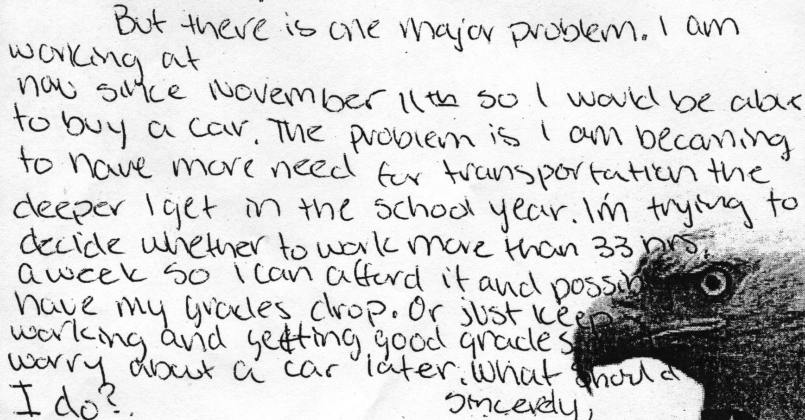 But there is one major problem. I am
working at
now since November 11th so I would be able
to buy a car. The problem is I am becoming
to have more need for transportation the
deeper I get in the school year. I'm trying to
decide whether to work more than 33 hrs.
a week so i can afford it and possib
have my grades drop. Or just keep
working and getting good grades
worry about a car later. What should
I do?
Sincerely,